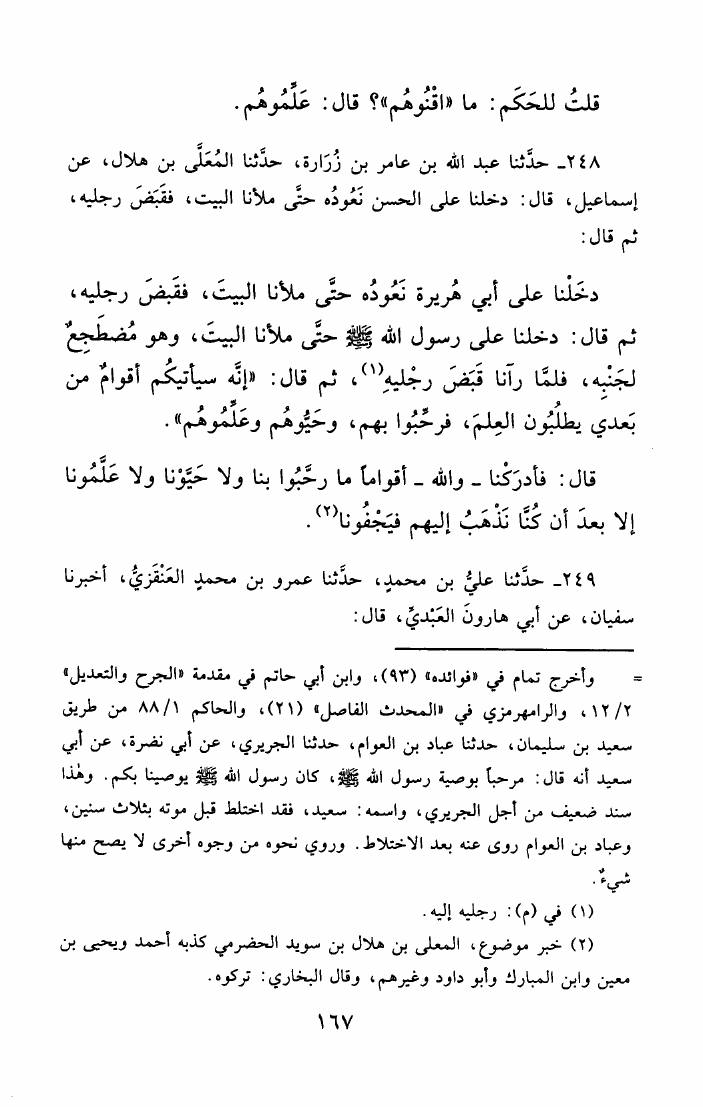 قلتُ للحَكَم: ما «اقْنُوهُم»؟ قال: عَلِّمُوهُم.
٢٤٨ـ حدَّثنا عبد الله بن عامر بن زُرَارة، حدَّثنا المُعَلَّى بن هلال، عن
إسماعيل، قال: دخلنا على الحسن نَعُودُه حتَّى ملأنا البيت، فقَبَضَ رجليه،
ثم قال:
دخَلْنا على أبي هُريرة نَعُودُه حتَّى ملأنا البيتَ، فقَبضَ رجليه،
ثم قال: دخلنا على رسول الله ﷺ حتَّى ملأنا البيتَ، وهو مُضطَجِعٌ
لجَنْبِه، فلمَّا رآنا قَبَضَ رجْليهِ(١)، ثم قال: «إنَّه سيأتيكُم أقوامٌ من
بَعدي يطلُبُون العِلمَ، فرحِّبُوا بهم، وحَيُّوهُم وعَلِّمُوهُم».
قال: فأدرَكْنا ـ والله ـ أقواماً ما رحَّبُوا بنا ولا حَيَّوْنا ولا عَلَّمُونا
إلا بعدَ أن كُنَّا نَذْهَبُ إليهم فيَجْفُونا(٢).
٢٤٩ـ حدَّثنا عليُّ بن محمدٍ، حدَّثنا عمرو بن محمدٍ العَنْقَزيُّ، أخبرنا
سفيان، عن أبي هارونَ العَبْديِّ، قال:
= وأخرج تمام في «فوائده» (٩٣)، وابن أبي حاتم في مقدمة «الجرح والتعديل»
١٢/٢، والرامهرمزي في «المحدث الفاصل» (٢١)، والحاكم ٨٨/١ من طريق
سعيد بن سليمان، حدثنا عباد بن العوام، حدثنا الجريري، عن أبي نضرة، عن أبي
سعيد أنه قال: مرحباً بوصية رسول الله ﷺ، كان رسول الله ﷺ يوصينا بكم. وهٰذا
سند ضعيف من أجل الجريري، واسمه: سعيد، فقد اختلط قبل موته بثلاث سنين،
وعباد بن العوام روى عنه بعد الاختلاط. وروي نحوه من وجوه أخرى لا يصح منها
شيءٌ.
(١) في (م): رجليه إليه.
(٢) خبر موضوع، المعلى بن هلال بن سويد الحضرمي كذبه أحمد ويحيى بن
معين وابن المبارك وأبو داود وغيرهم، وقال البخاري: تركوه.
١٦٧